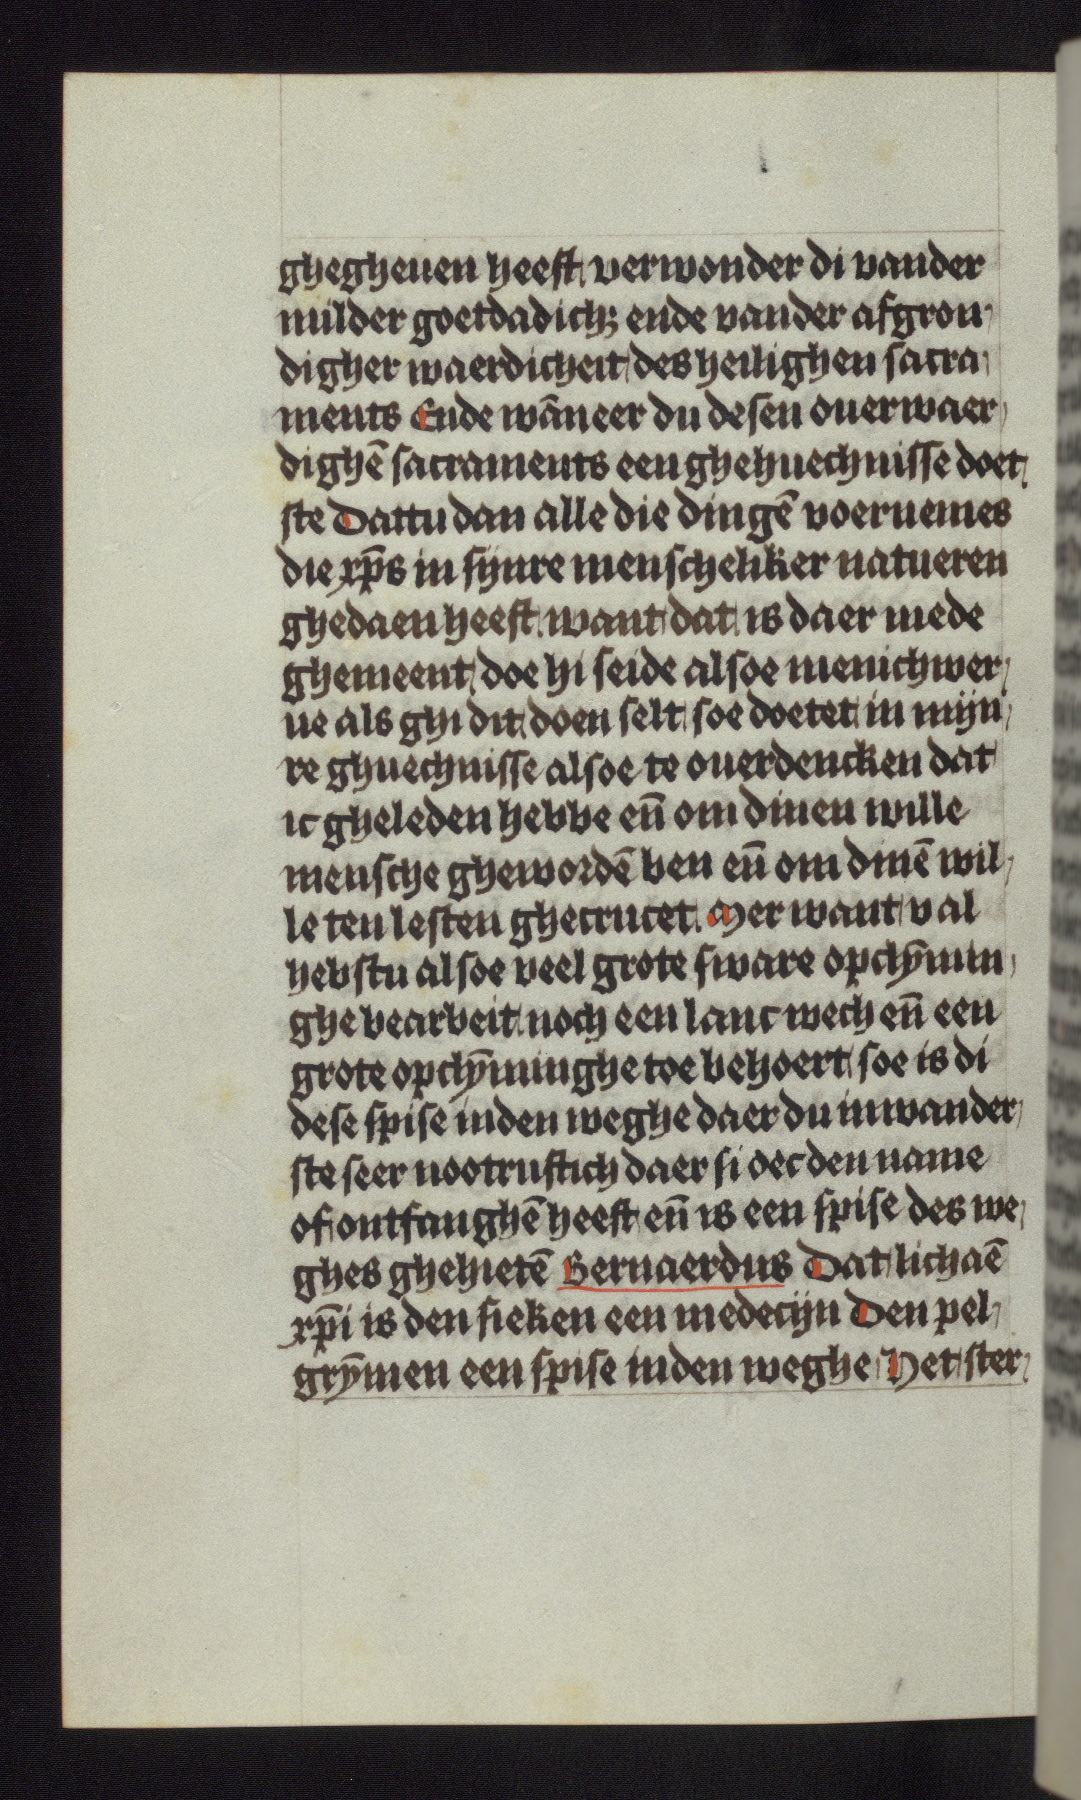 ghegheuen heeft verwonder di vander
milder goetdadichꝫ ende vander afgron
digher waerdicheit des heilighen sacra
ments Ende wāneer du desen ouerwaer
dighē sacraments een ghehuechnisse doet
ste Dattu dan alle die dingē voernemes
die xp̄s in sijnre menscheliker natueren
ghedaen heeft want dat is daer mede
ghemeent doe hi seide alsoe menichwer
ue als ghi dit doen selt soe doetet in mijn
re ghuechnisse alsoe te ouerdencken dat
ic gheleden hebbe en̄ om dinen wille
mensche ghewordē ben en̄ om dinē wil
le ten lesten ghecrucet. Mer want v al
hebstu alsoe veel grote sware opclȳmin
ghe bearbeit noch een lanc wech en̄ een
grote opclȳminghe toe behoert soe is di
dese spise inden weghe daer du in wander
ste seer nootrustich daer si oec den name
of ontfanghē heeft en̄ is een spise des we
ghes ghehietē Bernaerdus Dat lichaē
xp̄i is den sieken een medecijn Den pel
grȳmen een spise inden weghe Het ster